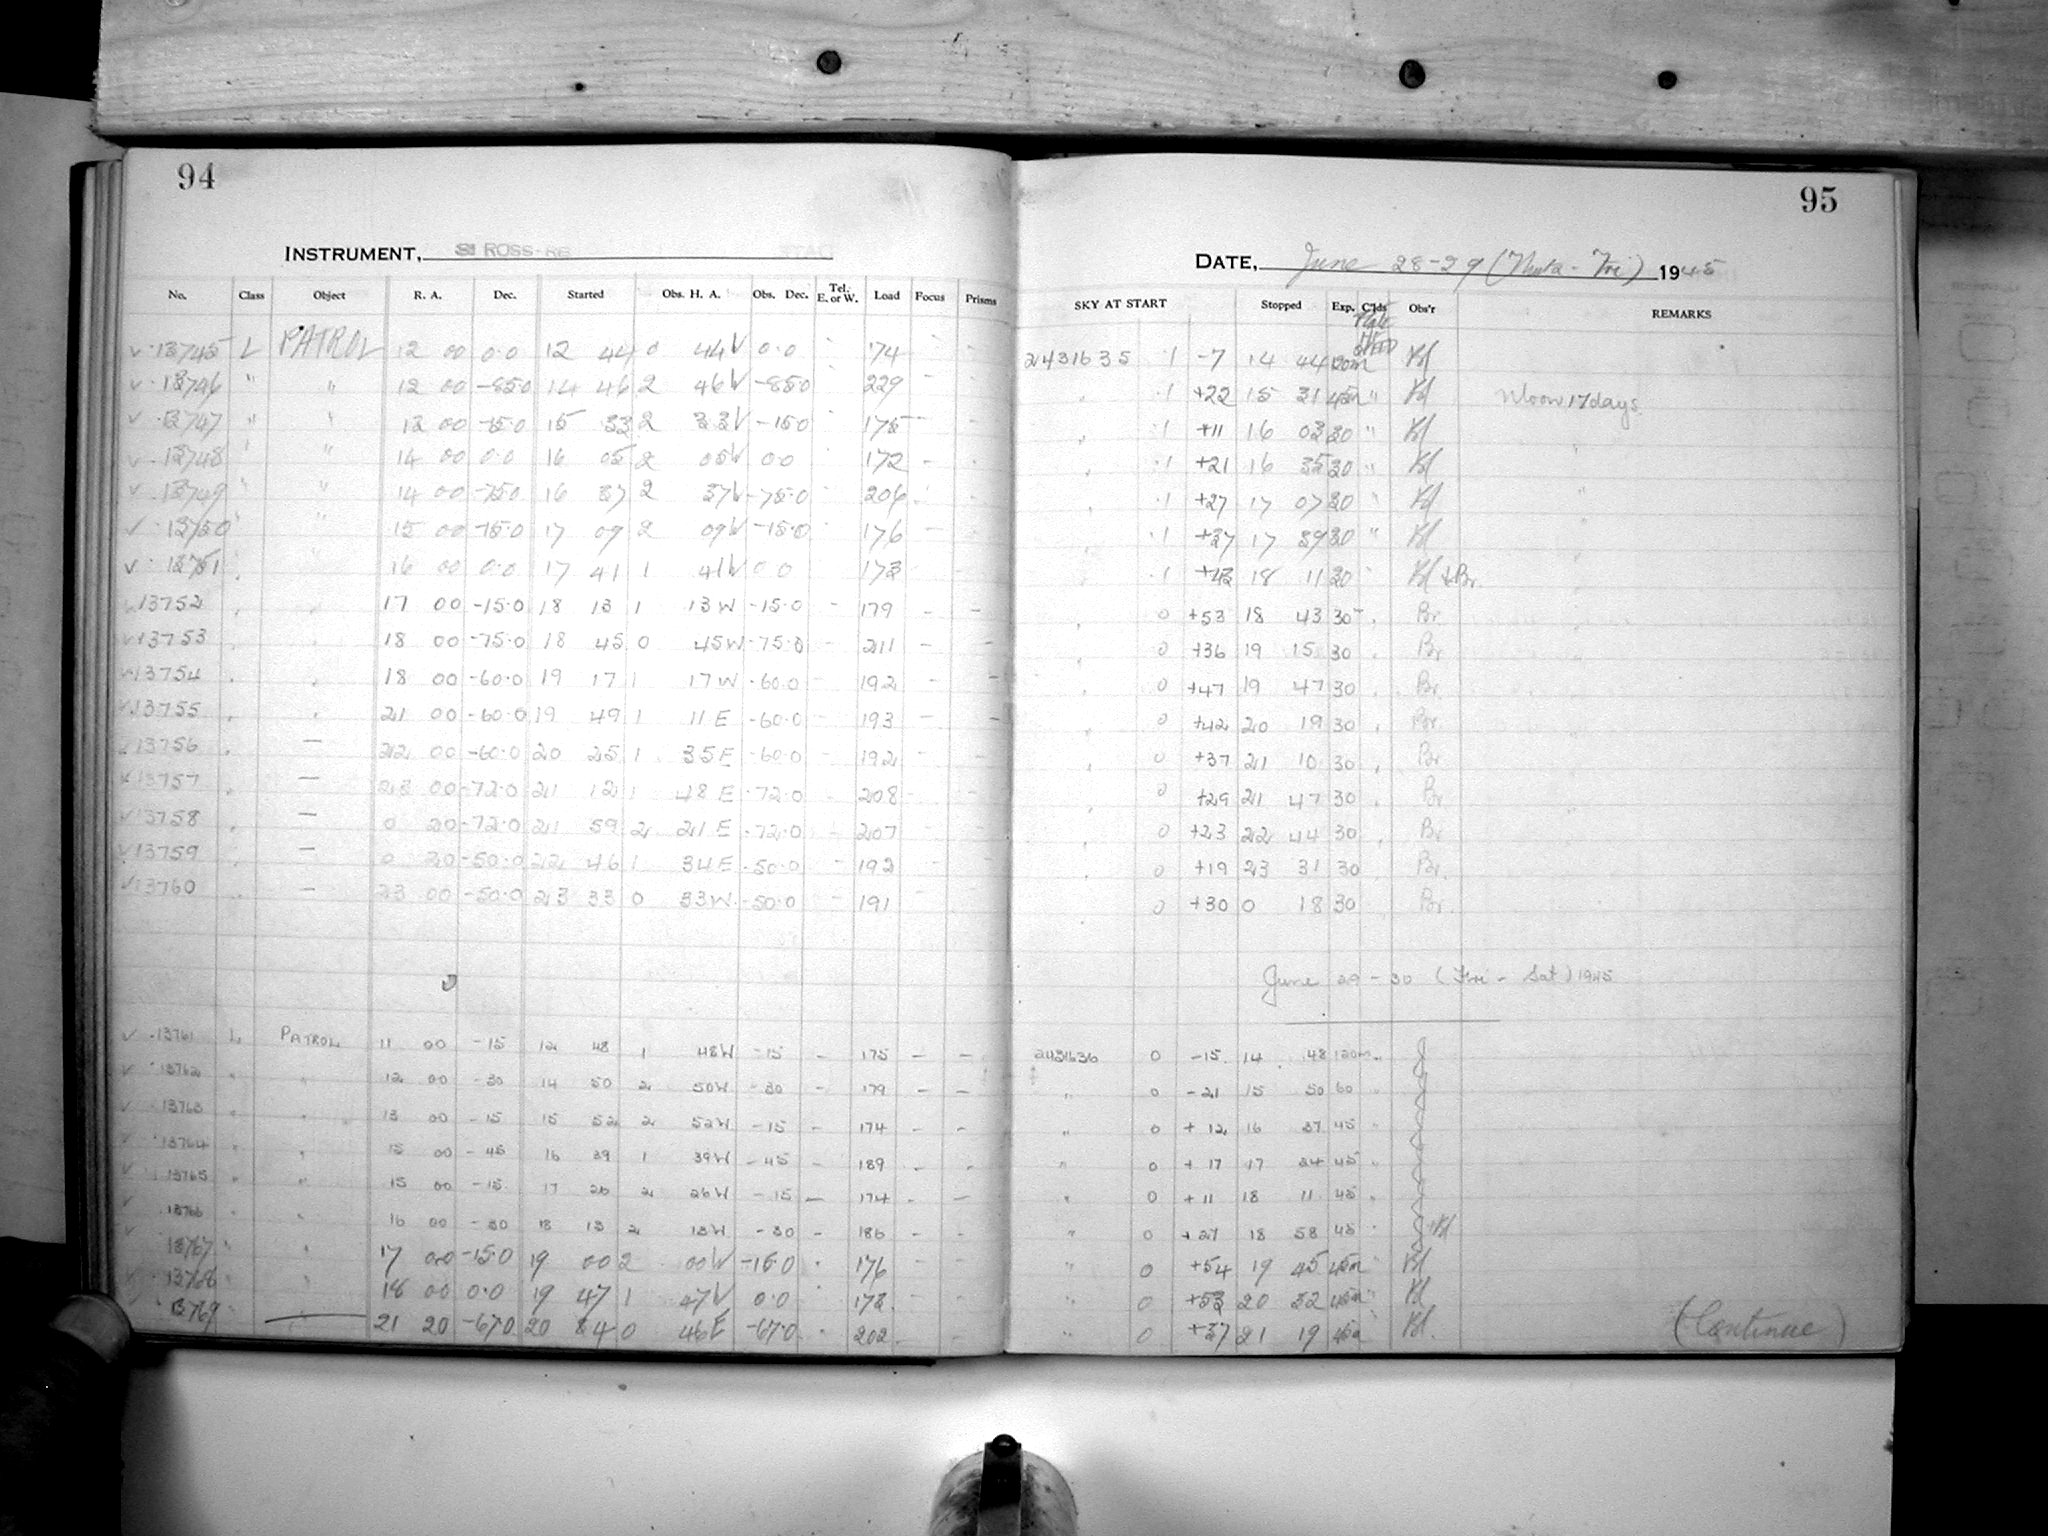 94
INSTRUMENT, ROSS-
No. Class Object R. A. Dec. Started Obs. H. A. Obs. Dec. Tel. E. or W. Load Focus Prisms
13745 L PATROL 12 00 0.0 12 44 0 44W 0.0 174
13746 " " 12 00 -85.0 14 46 2 46W -85.0 229 -
13747 " " 13 00 -15.0 15 33 2 33W -15.0 175 -
13748 " " 14 00 0.0 16 05 2 05W 0.0 172 -
13749 " " 14 00 -75.0 16 37 2 37W -75.0 206
13750 " " 15 00 -15.0 17 09 2 09W -15.0 176 -
13751 16 00 0.0 17 41 1 41W 0.0 173 -
13752 17 00 -15.0 18 13 1 13W -15.0 - 179 - -
13753 18 00 -75.0 18 45 0 45W -75.0 - 211 - -
13754 18 00 -60.0 19 17 1 17W -60.0 - 192 - -
13755 21 00 -60.0 19 49 1 11E -60.0 - 193 - -
13756 — 22 00 -60.0 20 25 1 35E -60.0 - 192 - -
13757 — 23 00 -72.0 21 12 1 48E -72.0 - 208 - -
13758 — 0 20 -72.0 21 59 2 21E -72.0 - 207 - -
13759 — 0 20 -50.0 22 46 1 34E -50.0 - 192 - -
13760 — 23 00 -50.0 23 33 0 33W -50.0 - 191
13761 L PATROL 11 00 -15 12 48 1 48W -15 - 175 - -
13762 " " 12 00 -30 14 50 2 50W -30 - 179 - -
13763 " " 13 00 -15 15 52 2 52W -15 - 174 - -
13764 " " 15 00 -45 16 39 1 39W -45 - 189 - -
13765 " " 15 00 -15 17 26 2 26W -15 - 174 - -
13766 " 16 00 -30 18 13 2 13W -30 - 186 - -
13767 " " 17 00 -15.0 19 00 2 00W -15.0 176 - -
13768 " " 18 00 0.0 19 47 1 47W 0.0 173 -
13769 " — 21 20 -67.0 20 34 0 46E -67.0 202 -
95
DATE, June 28-29 (Thurs - Fri) 1945
SKY AT START Stopped Exp. C'lds Obs'r REMARKS
2431635 .1 -7 14 44 120m Bl
" .1 +22 15 31 45m " Bl Moon 17 days
" .1 +11 16 03 30 " Bl "
" .1 +21 16 35 30 " Bl
" .1 +27 17 07 30 " Bl "
" .1 +37 17 39 30 " Bl "
" .1 +43 18 11 30 " Bl + Br. "
" 0 +53 18 43 30 Br
" 0 +36 19 15 30 Br
" 0 +47 19 47 30 Br
" 0 +42 20 19 30 Br
" 0 +37 21 10 30 Br
" 0 +29 21 47 30 Br
" 0 +23 22 44 30 Br
" 0 +19 23 31 30 Br.
" 0 +30 0 18 30 Br.
June 29-30 (Fri - Sat) 1945
2431636 0 -15 14 48 120m J
" 0 -21 15 50 60 J
" 0 +12 16 37 45 " J
" 0 +17 17 24 45 " J
" 0 +11 18 11 45 " J
" 0 +27 18 58 45 " J+Bl
" 0 +54 19 45 45m " Bl
" 0 +53 20 32 45m " Bl
" 0 +37 21 19 45m Bl.
(Continue)